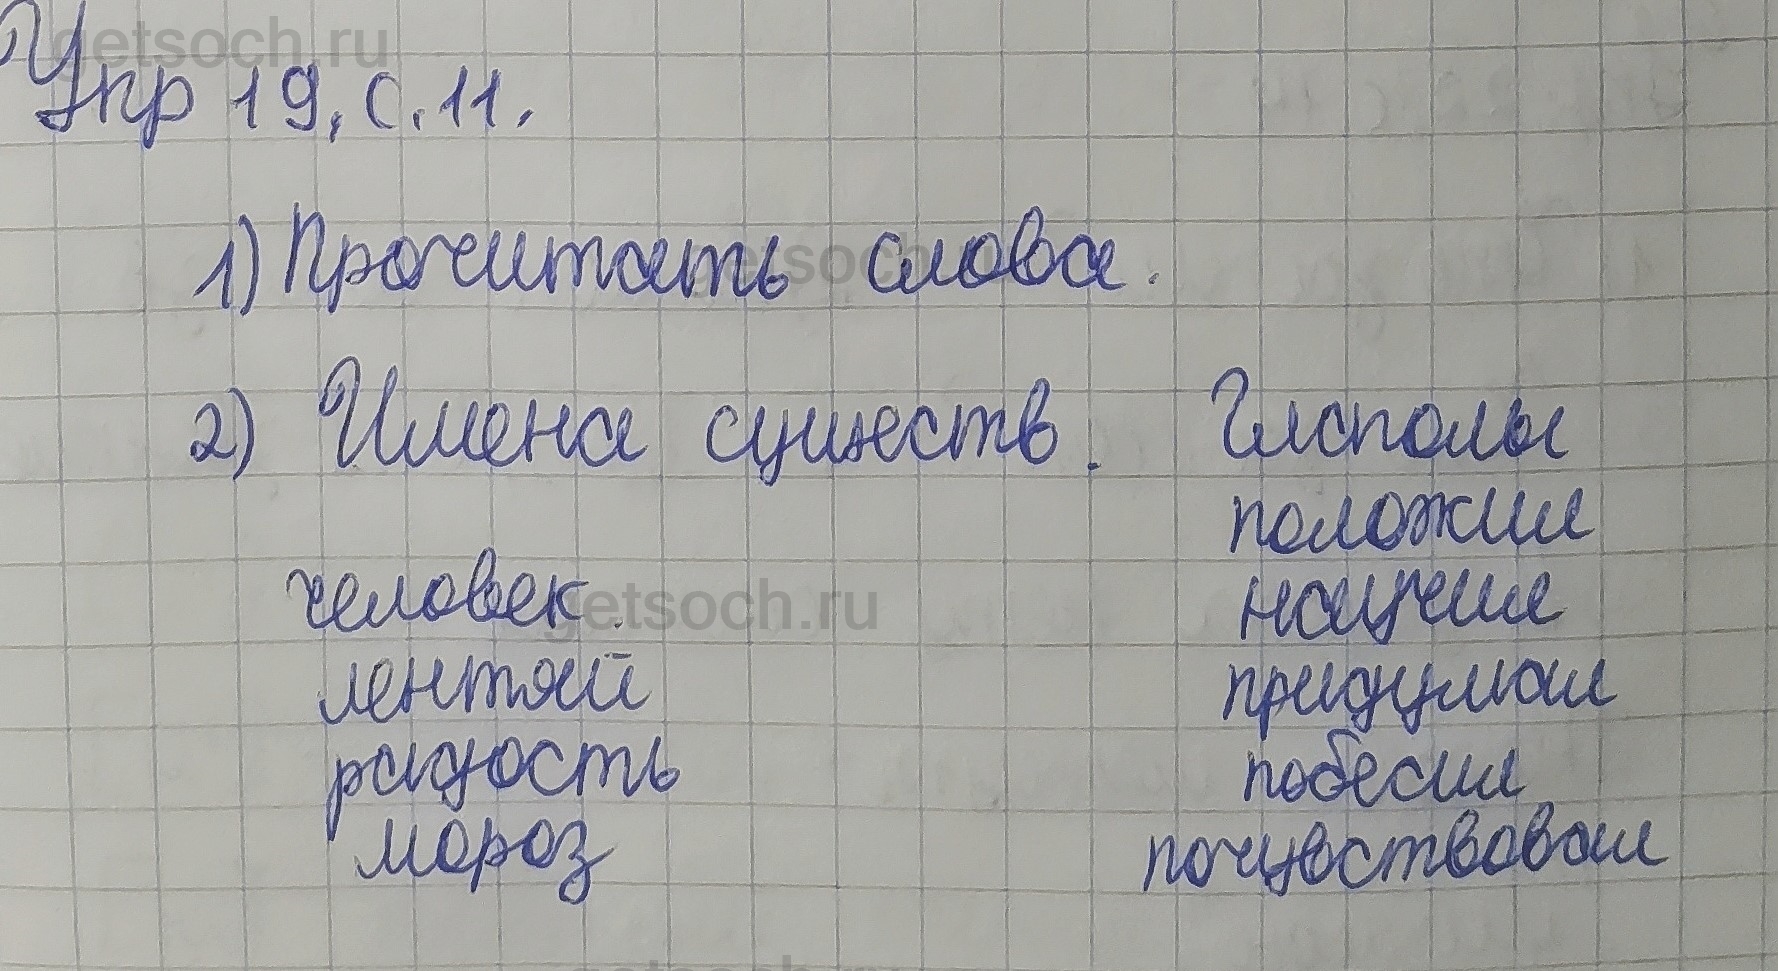 getsoch.ru
Упр 19, с. 11.
1) Прочитать слова.
getsoch.ru
2) Имена существ. Глаголы
положил
человек научил
getsoch.ru
лентяй придумал
радость побесил
мороз почувствовал
getsoch.ru